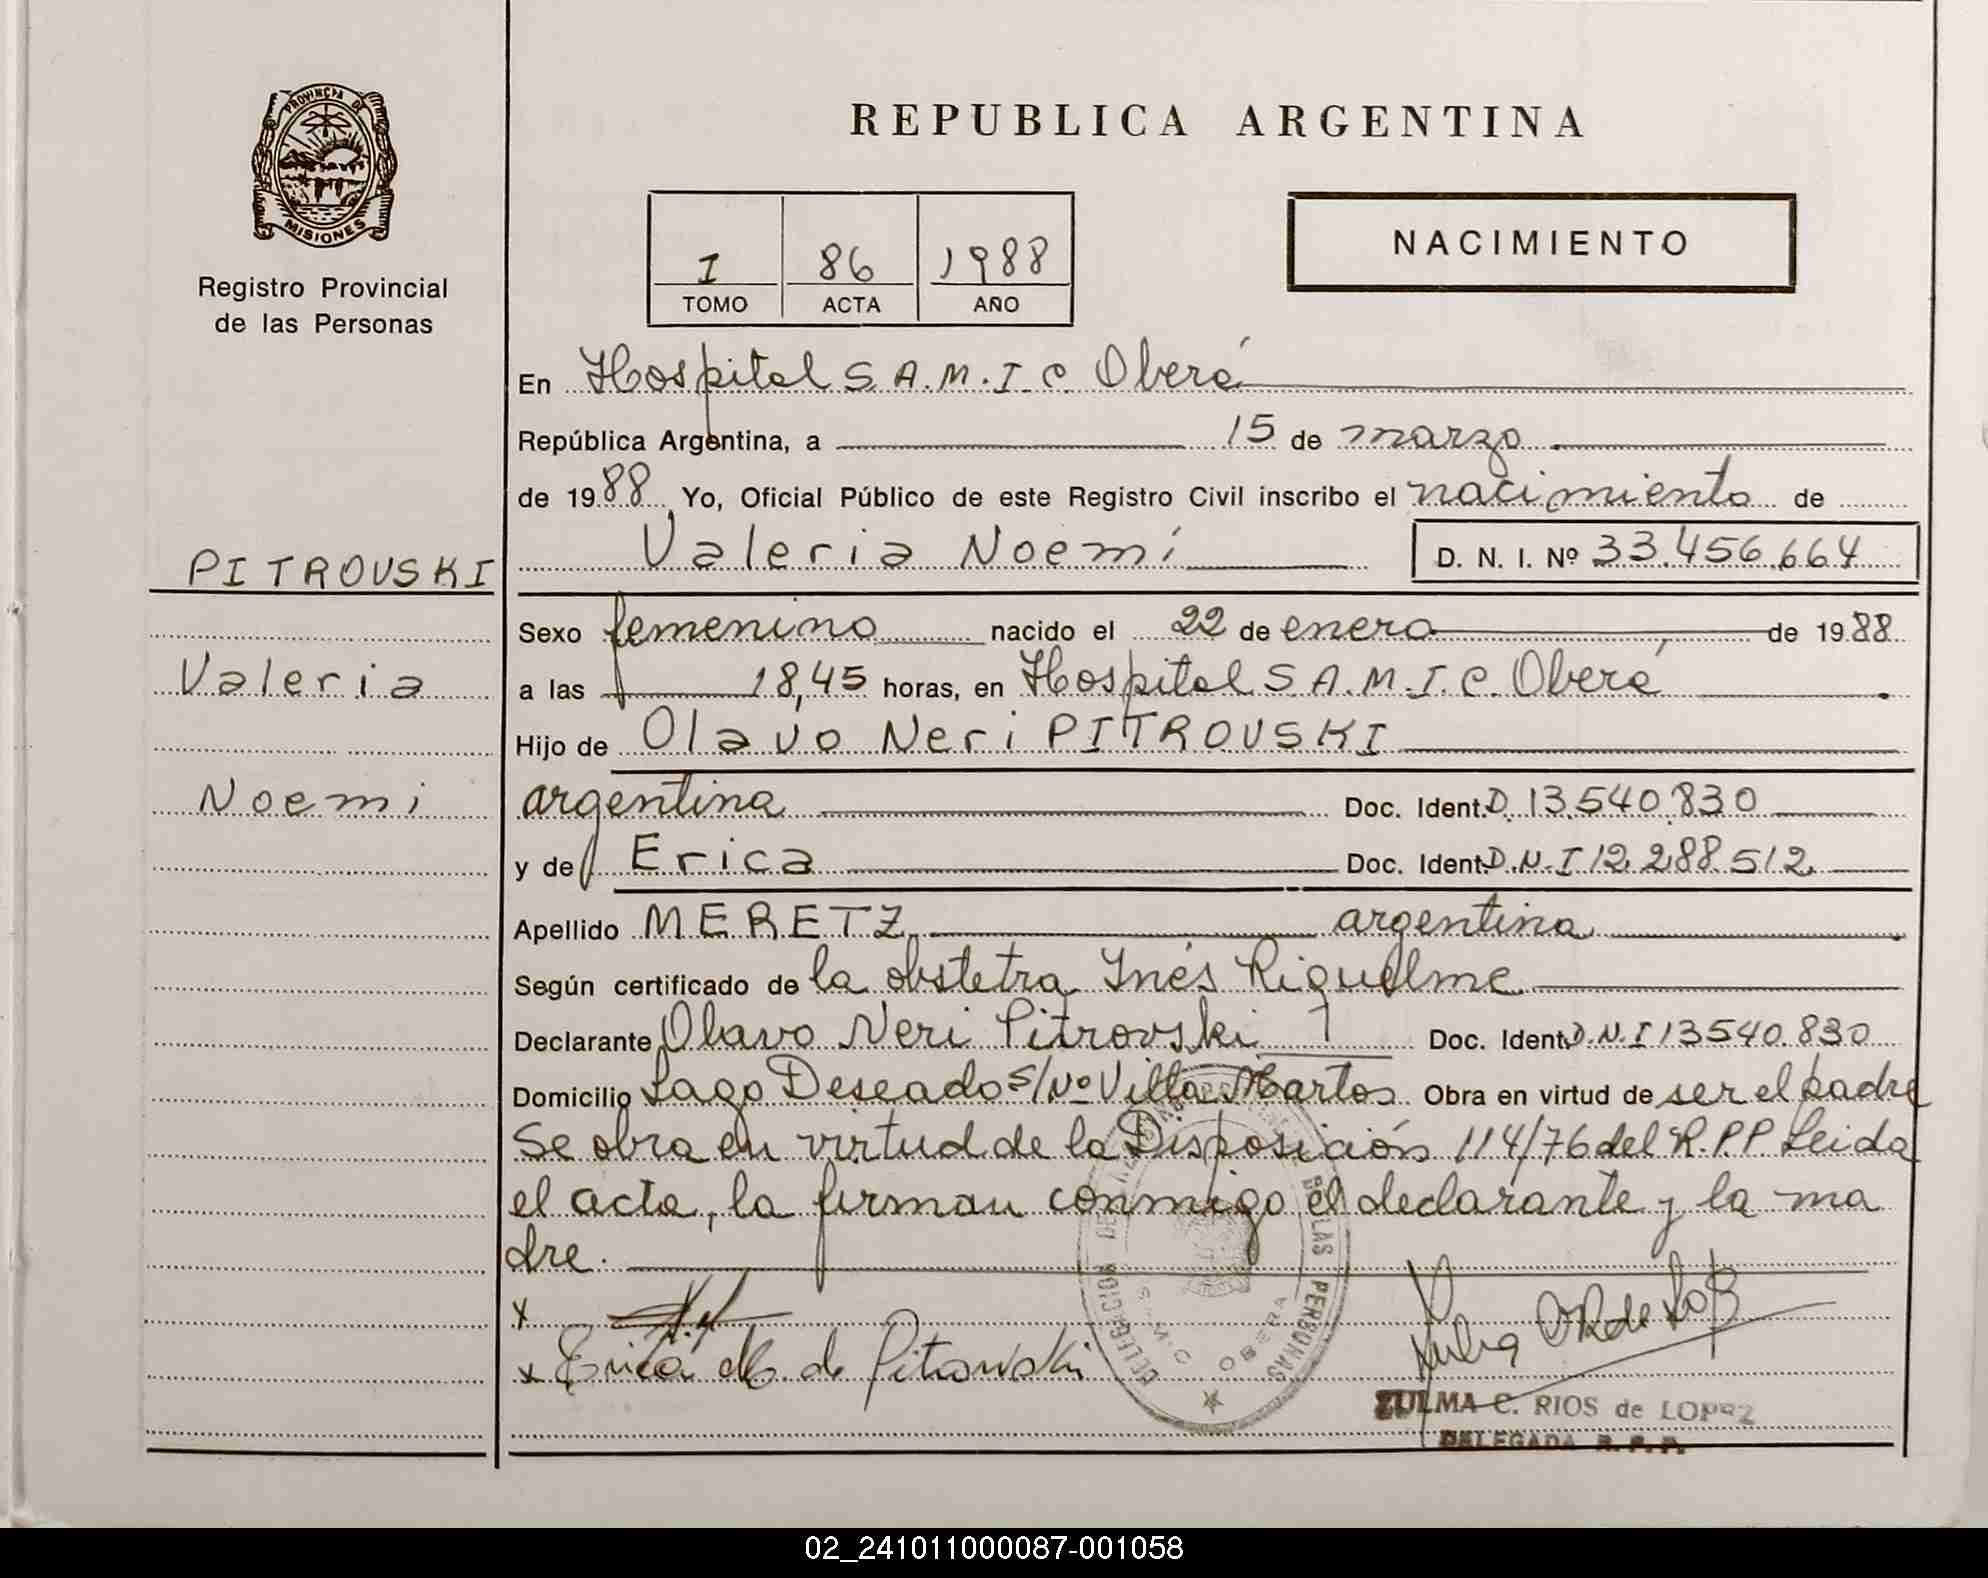 PROVINCIA DE
MISIONES
Registro Provincial
de las Personas
REPUBLICA ARGENTINA
I 86 1988
TOMO ACTA AÑO
NACIMIENTO
En Hospital S.A.M.I.C. Oberá
República Argentina, a 15 de marzo
de 1988 Yo, Oficial Público de este Registro Civil inscribo el nacimiento de
Valeria Noemí D. N. I. Nº 33.456.664
PITROVSKI
Valeria
Noemi
Sexo femenino nacido el 22 de enero de 1988
a las 18,45 horas, en Hospital S.A.M.I.C. Oberá
Hijo de Olavo Neri PITROVSKI
argentina Doc. Ident. D. 13.540.830
y de Erica Doc. Ident. D.N.I 12.288.512
Apellido MERETZ argentina
Según certificado de la obstetra Inés Riquelme
Declarante Olavo Neri Pitrovski Doc. Ident. D.N.I 13540.830
Domicilio Lago Deseado S/Nº Villa Martos Obra en virtud de ser el padre
Se obra en virtud de la Disposición 114/76 del R.P.P. Leida
el acta, la firman conmigo el declarante y la ma
dre.
x
x Erica M. de Pitrowski
DELEGACION DE LAS PERSONAS
OBERA
ZULMA C. RIOS de LOPEZ
DELEGADA R. P. P.
02_241011000087-001058